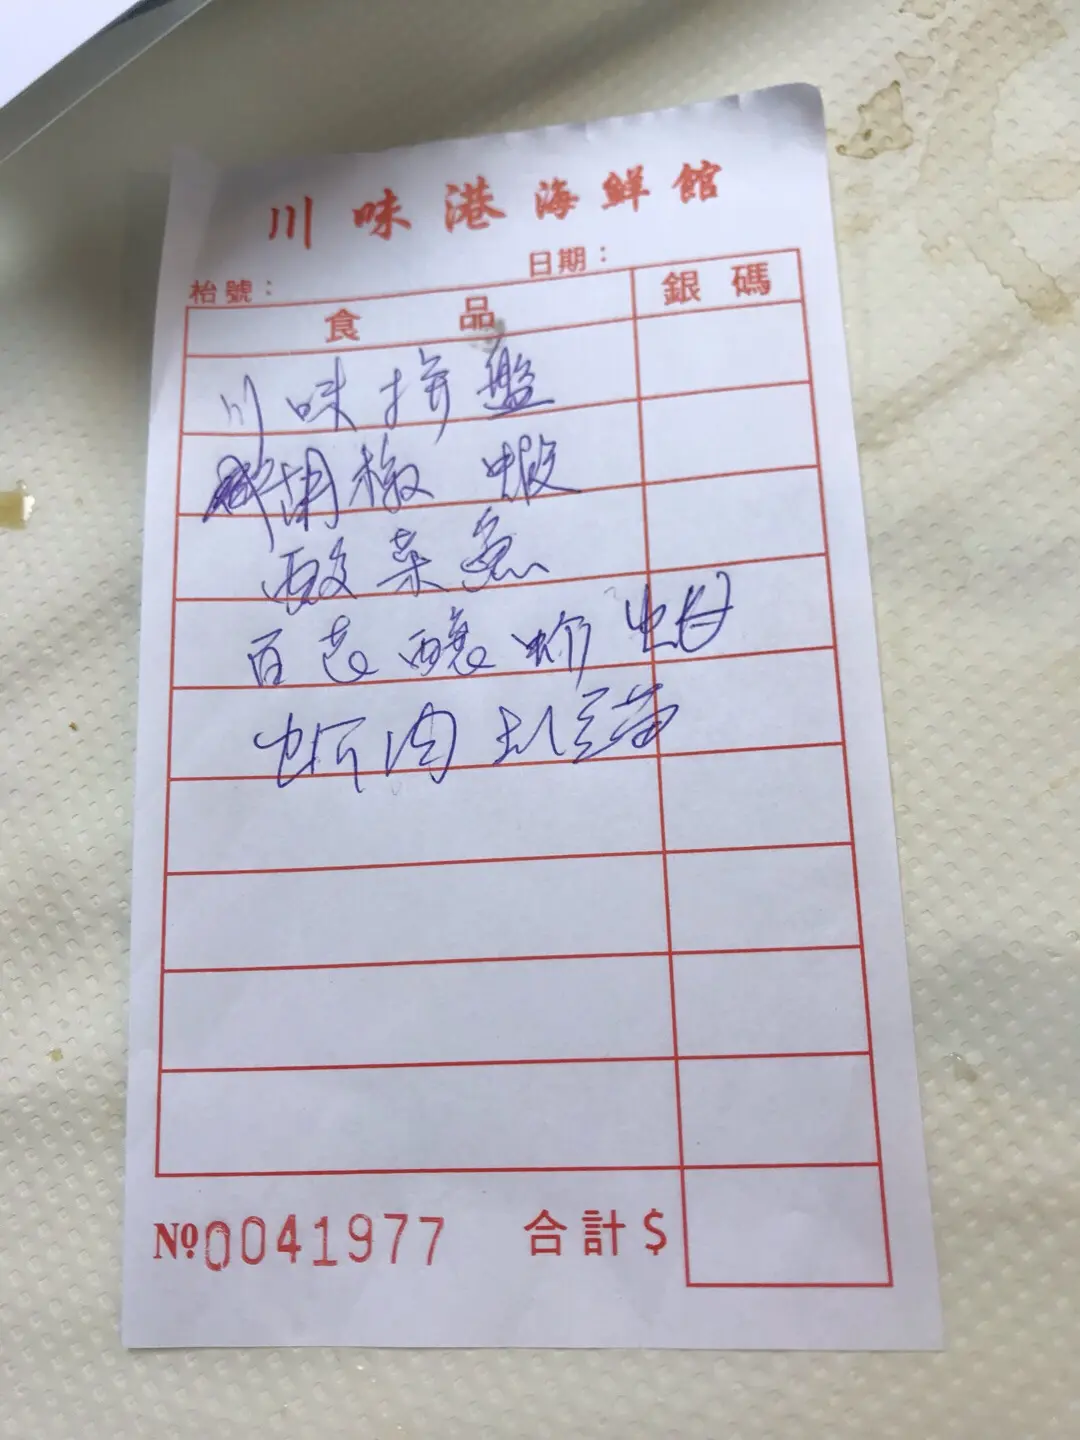 川味港海鮮館
枱號： 日期：
食品 銀碼
川味拼盤
胡椒蝦
酸菜魚
百花釀蚧蚶
虾肉扒豆苗
№0041977 合計$